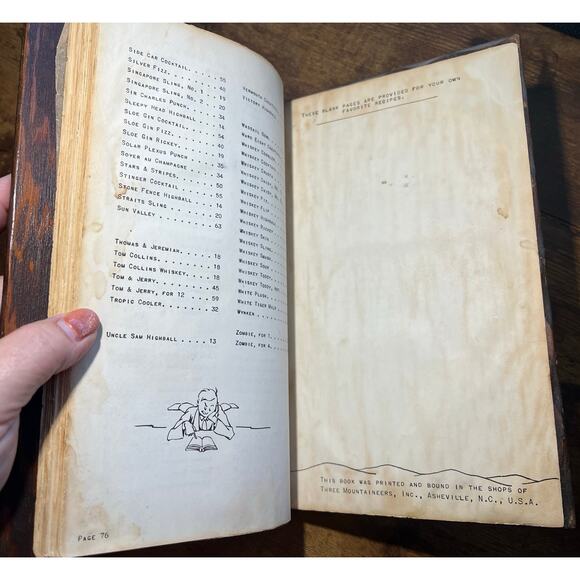 SIDE CAR COCKTAIL. . . . . . 55
SILVER FIZZ. . . . . . . . . 40
SINGAPORE SLING, NO. 1 . . . 19
SINGAPORE SLING, NO. 2 . . . 20
SIR CHARLES PUNCH. . . . . . 34
SLEEPY HEAD HIGHBALL . . . . 14
SLOE GIN COCKTAIL. . . . . . 54
SLOE GIN FIZZ. . . . . . . . 40
SLOE GIN RICKEY. . . . . . . 19
SOLAR PLEXUS PUNCH . . . . . 35
SOYER AU CHAMPAGNE . . . . . 34
STARS & STRIPES. . . . . . . 50
STINGER COCKTAIL . . . . . . 55
STONE FENCE HIGHBALL . . . . 14
STRAITS SLING . . . . . . . 20
SUN VALLEY . . . . . . . . . 63
THOMAS & JEREMIAH. . . . . . 18
TOM COLLINS. . . . . . . . . 18
TOM COLLINS WHISKEY. . . . . 18
TOM & JERRY. . . . . . . . . 45
TOM & JERRY, FOR 12 . . . . 59
TROPIC COOLER. . . . . . . . 32
UNCLE SAM HIGHBALL . . . . . 13
VERMOUTH
VICTORY
WASSAIL BOWL
WARD EIGHT
WHISKEY COBBLER
WHISKEY
WHISKEY
WHISKEY
WHISKEY FIX
WHISKEY FLIP
WHISKEY HIGHBALL
WHISKEY
WHISKEY SKIN
WHISKEY SLING
WHISKEY SMASH
WHISKEY SOUR
WHISKEY TODDY
WHISKEY TODDY,
WHITE PLUSH
WHITE TIGER MILK
WYNKEN
ZOMBIE, FOR 1
ZOMBIE, FOR 4
PAGE 76
THESE BLANK PAGES ARE PROVIDED FOR YOUR OWN
FAVORITE RECIPES.
THIS BOOK WAS PRINTED AND BOUND IN THE SHOPS OF
THREE MOUNTAINEERS, INC., ASHEVILLE, N.C., U.S.A.